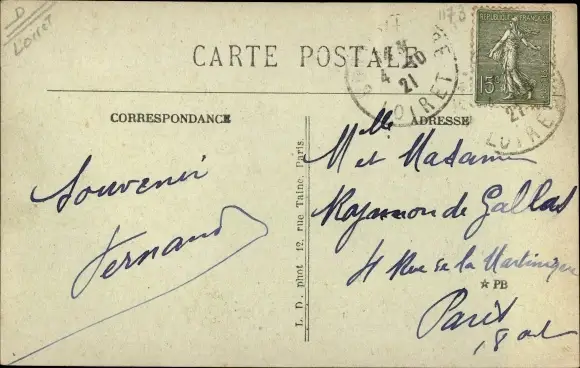 D
Loiret
CARTE POSTALE
CORRESPONDANCE
ADRESSE
REPUBLIQUE FRANÇAISE
15c
4
21
LOIRET
21
LOIRET
Souvenir
Fernand
L. D. phot 12, rue Taine, Paris.
Mlle
M et Madame
de Gallas
41 Rue de la Martinique
★ PB
Paris
18